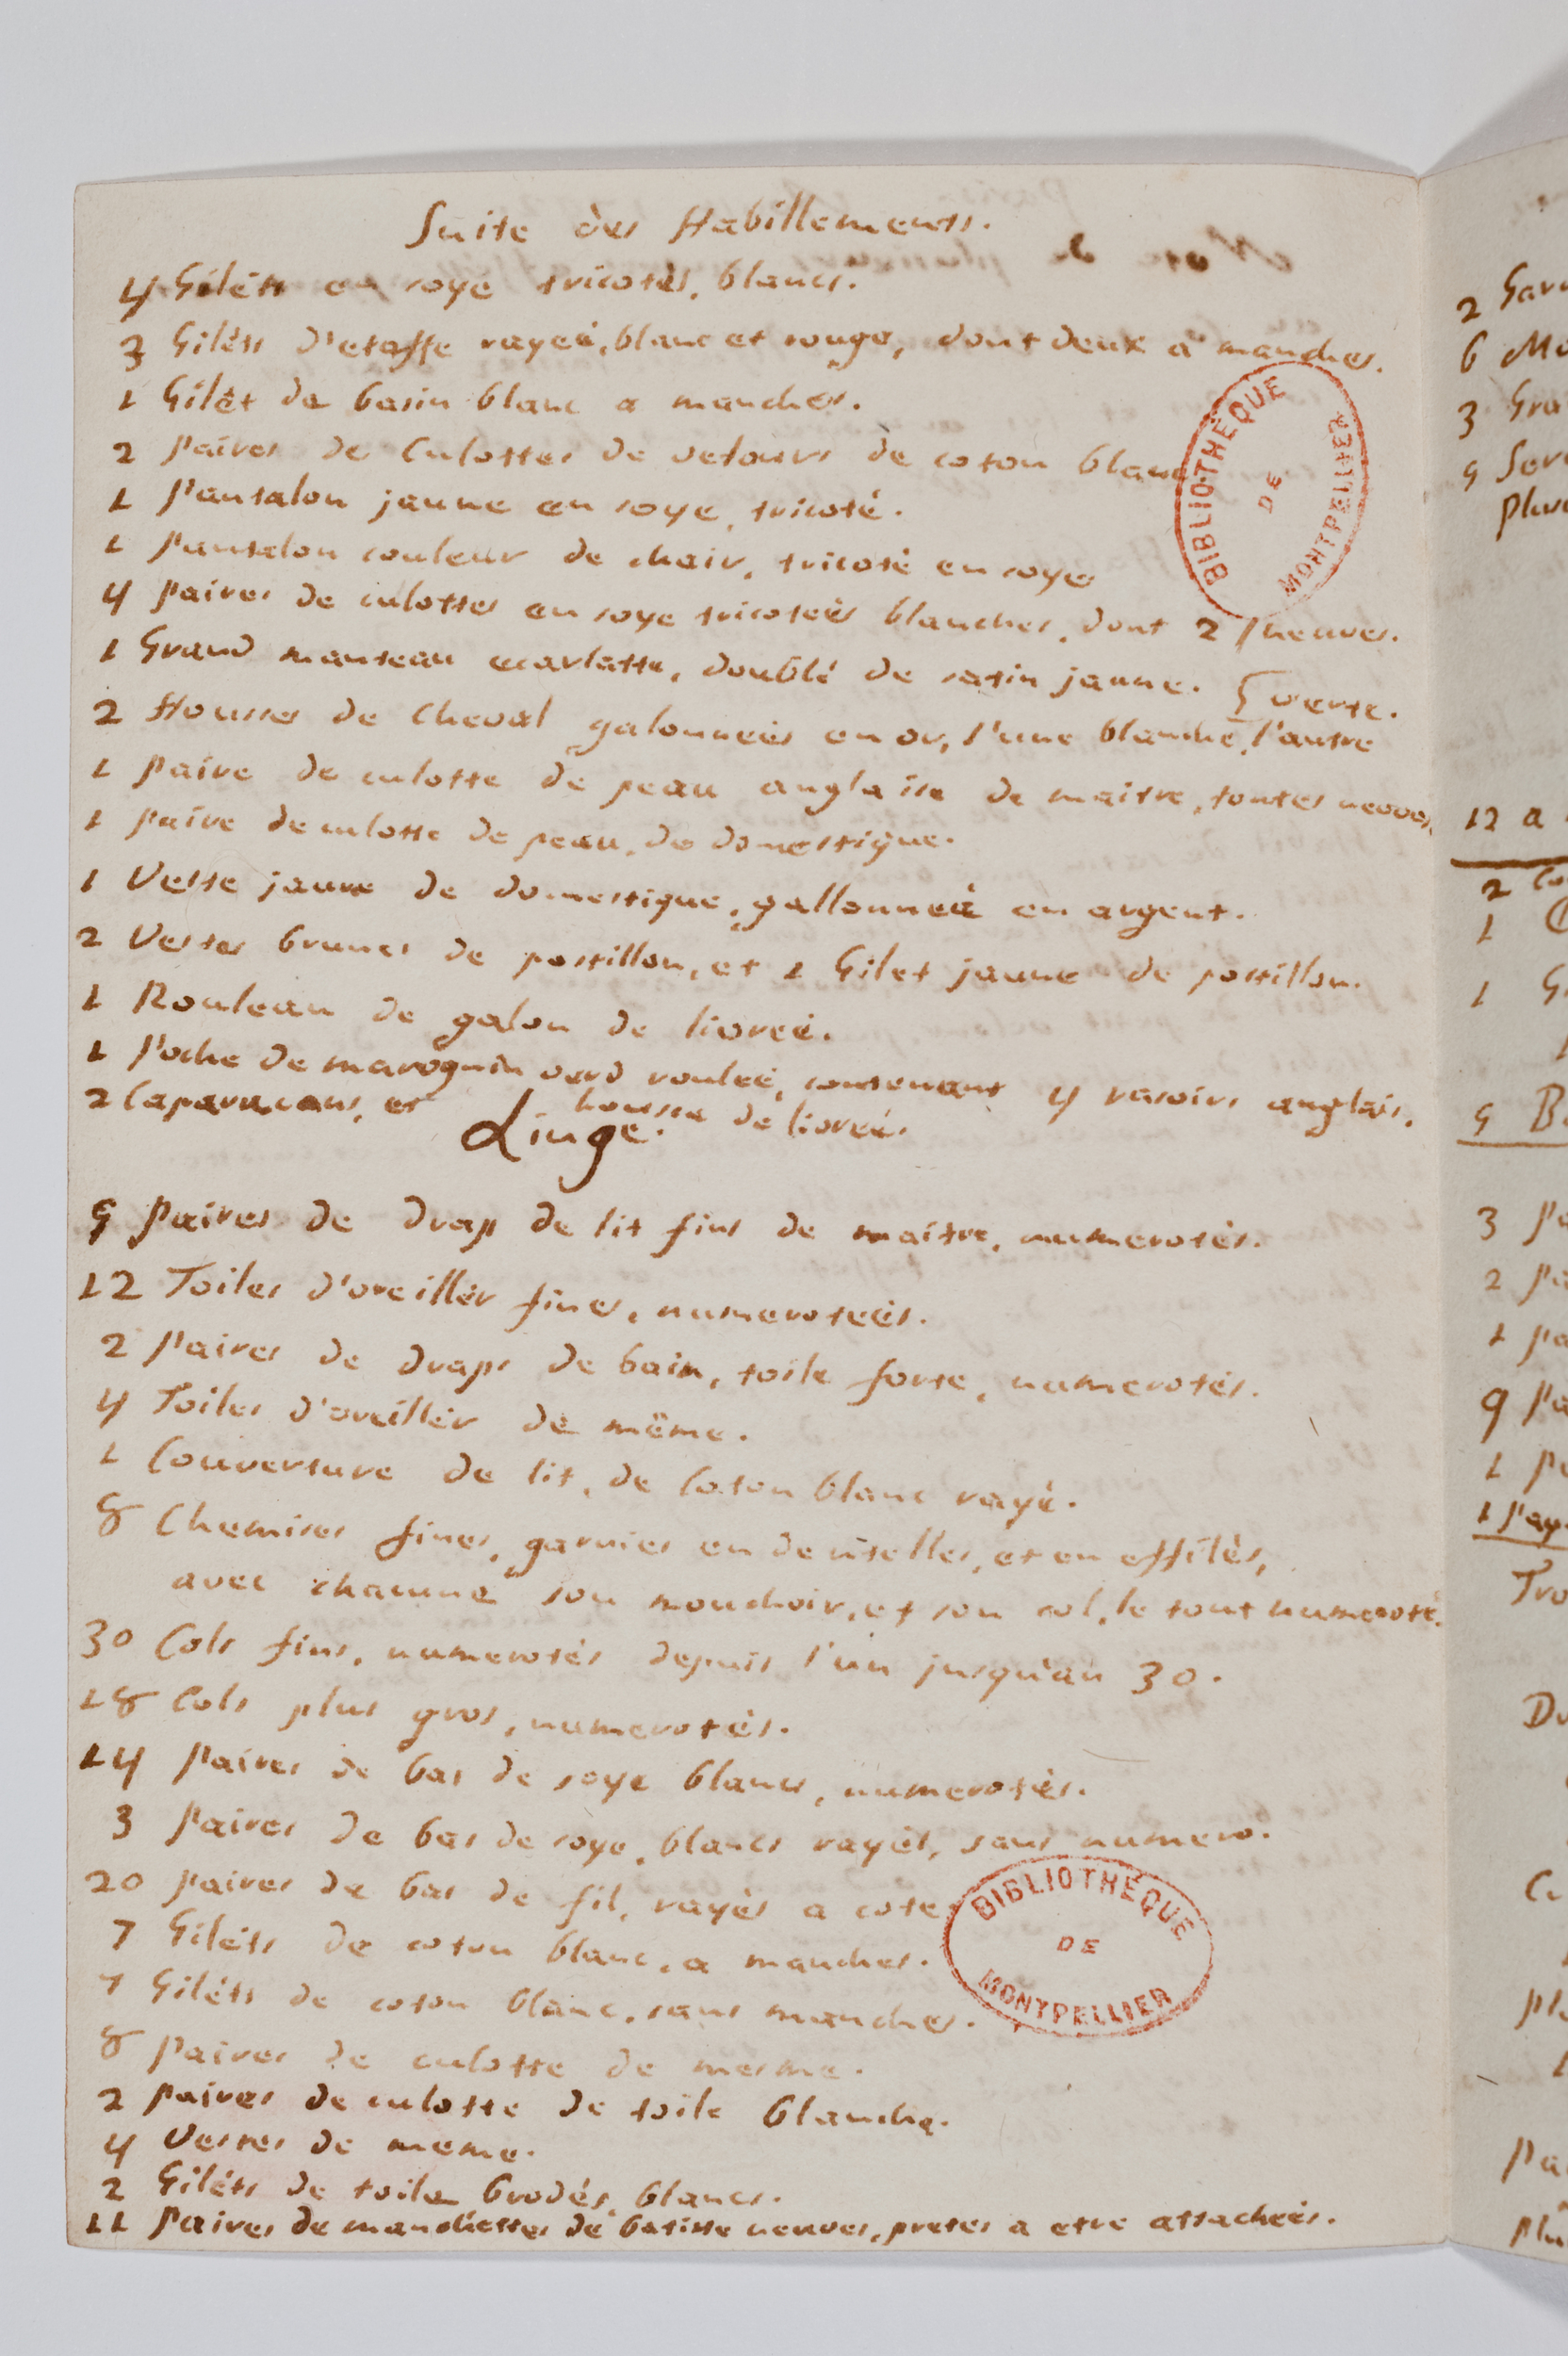 Suite des Habillements.
4 Gilèts en soye tricotès, blancs.
3 Gilèts d'etoffe rayeé, blanc et rouge, dont deux a manches.
1 Gilèt de basin blanc a manches.
2 Paires de Culottes de velours de coton blanc
1 Pantalon jaune en soye, tricoté.
1 Pantalon couleur de chair, tricoté en soye
4 Paires de culottes en soye tricoteès blanches, dont 2 neuves.
1 Grand manteau ecarlatte, doublé de satin jaune.
verte.
2 Housses de Cheval galonneès en or, l'une blanche, l'autre
1 Paire de culotte de peau anglaise de maitre, toutes neuves
1 Paire de culotte de peau, de domestique.
1 Veste jaune de domestique, gallonneè en argent.
2 Vestes brunes de postillon, et 1 Gilet jaune de postillon.
1 Rouleau de galon de livreé.
1 Poche de maroquin verd rouleé, contenant 4 rasoirs anglais.
2 Caparacons, et housse de livreé.
Linge.
9 Paires de drap de lit fins de maître, numerotès.
12 Toiles d'oreillèr fines, numeroteès.
2 Paires de draps de bain, toile forte, numerotés.
4 Toiles d'oreillèr de même.
1 Couverture de lit, de Coton blanc rayé.
8 Chemises fines, garnies en dentelles, et en effilès,
avec chacune son mouchoir, et son col, le tout numeroté.
30 Cols fins, numerotés depuis l'un jusqu'au 30.
18 Cols plus gros, numerotès.
14 Paires de bas de soye blancs, numerotès.
3 Paires de bas de soye, blancs rayès, sans numero.
20 Paires de bas de fil, rayès a cote
7 Gilèts de coton blanc, a manches.
7 Gilèts de coton blanc, sans manches.
8 Paires de culotte de mesme.
2 Paires de culotte de toile blanche.
4 Vestes de meme.
2 Gilèts de toile brodés blancs.
11 Paires de manchettes de batiste neuves, pretes a etre attacheès.
BIBLIOTHÈQUE
DE
MONTPELLIER
BIBLIOTHÈQUE
DE
MONTPELLIER
2
6
3
12 a
2
1
1
3
2
1
9
1
1